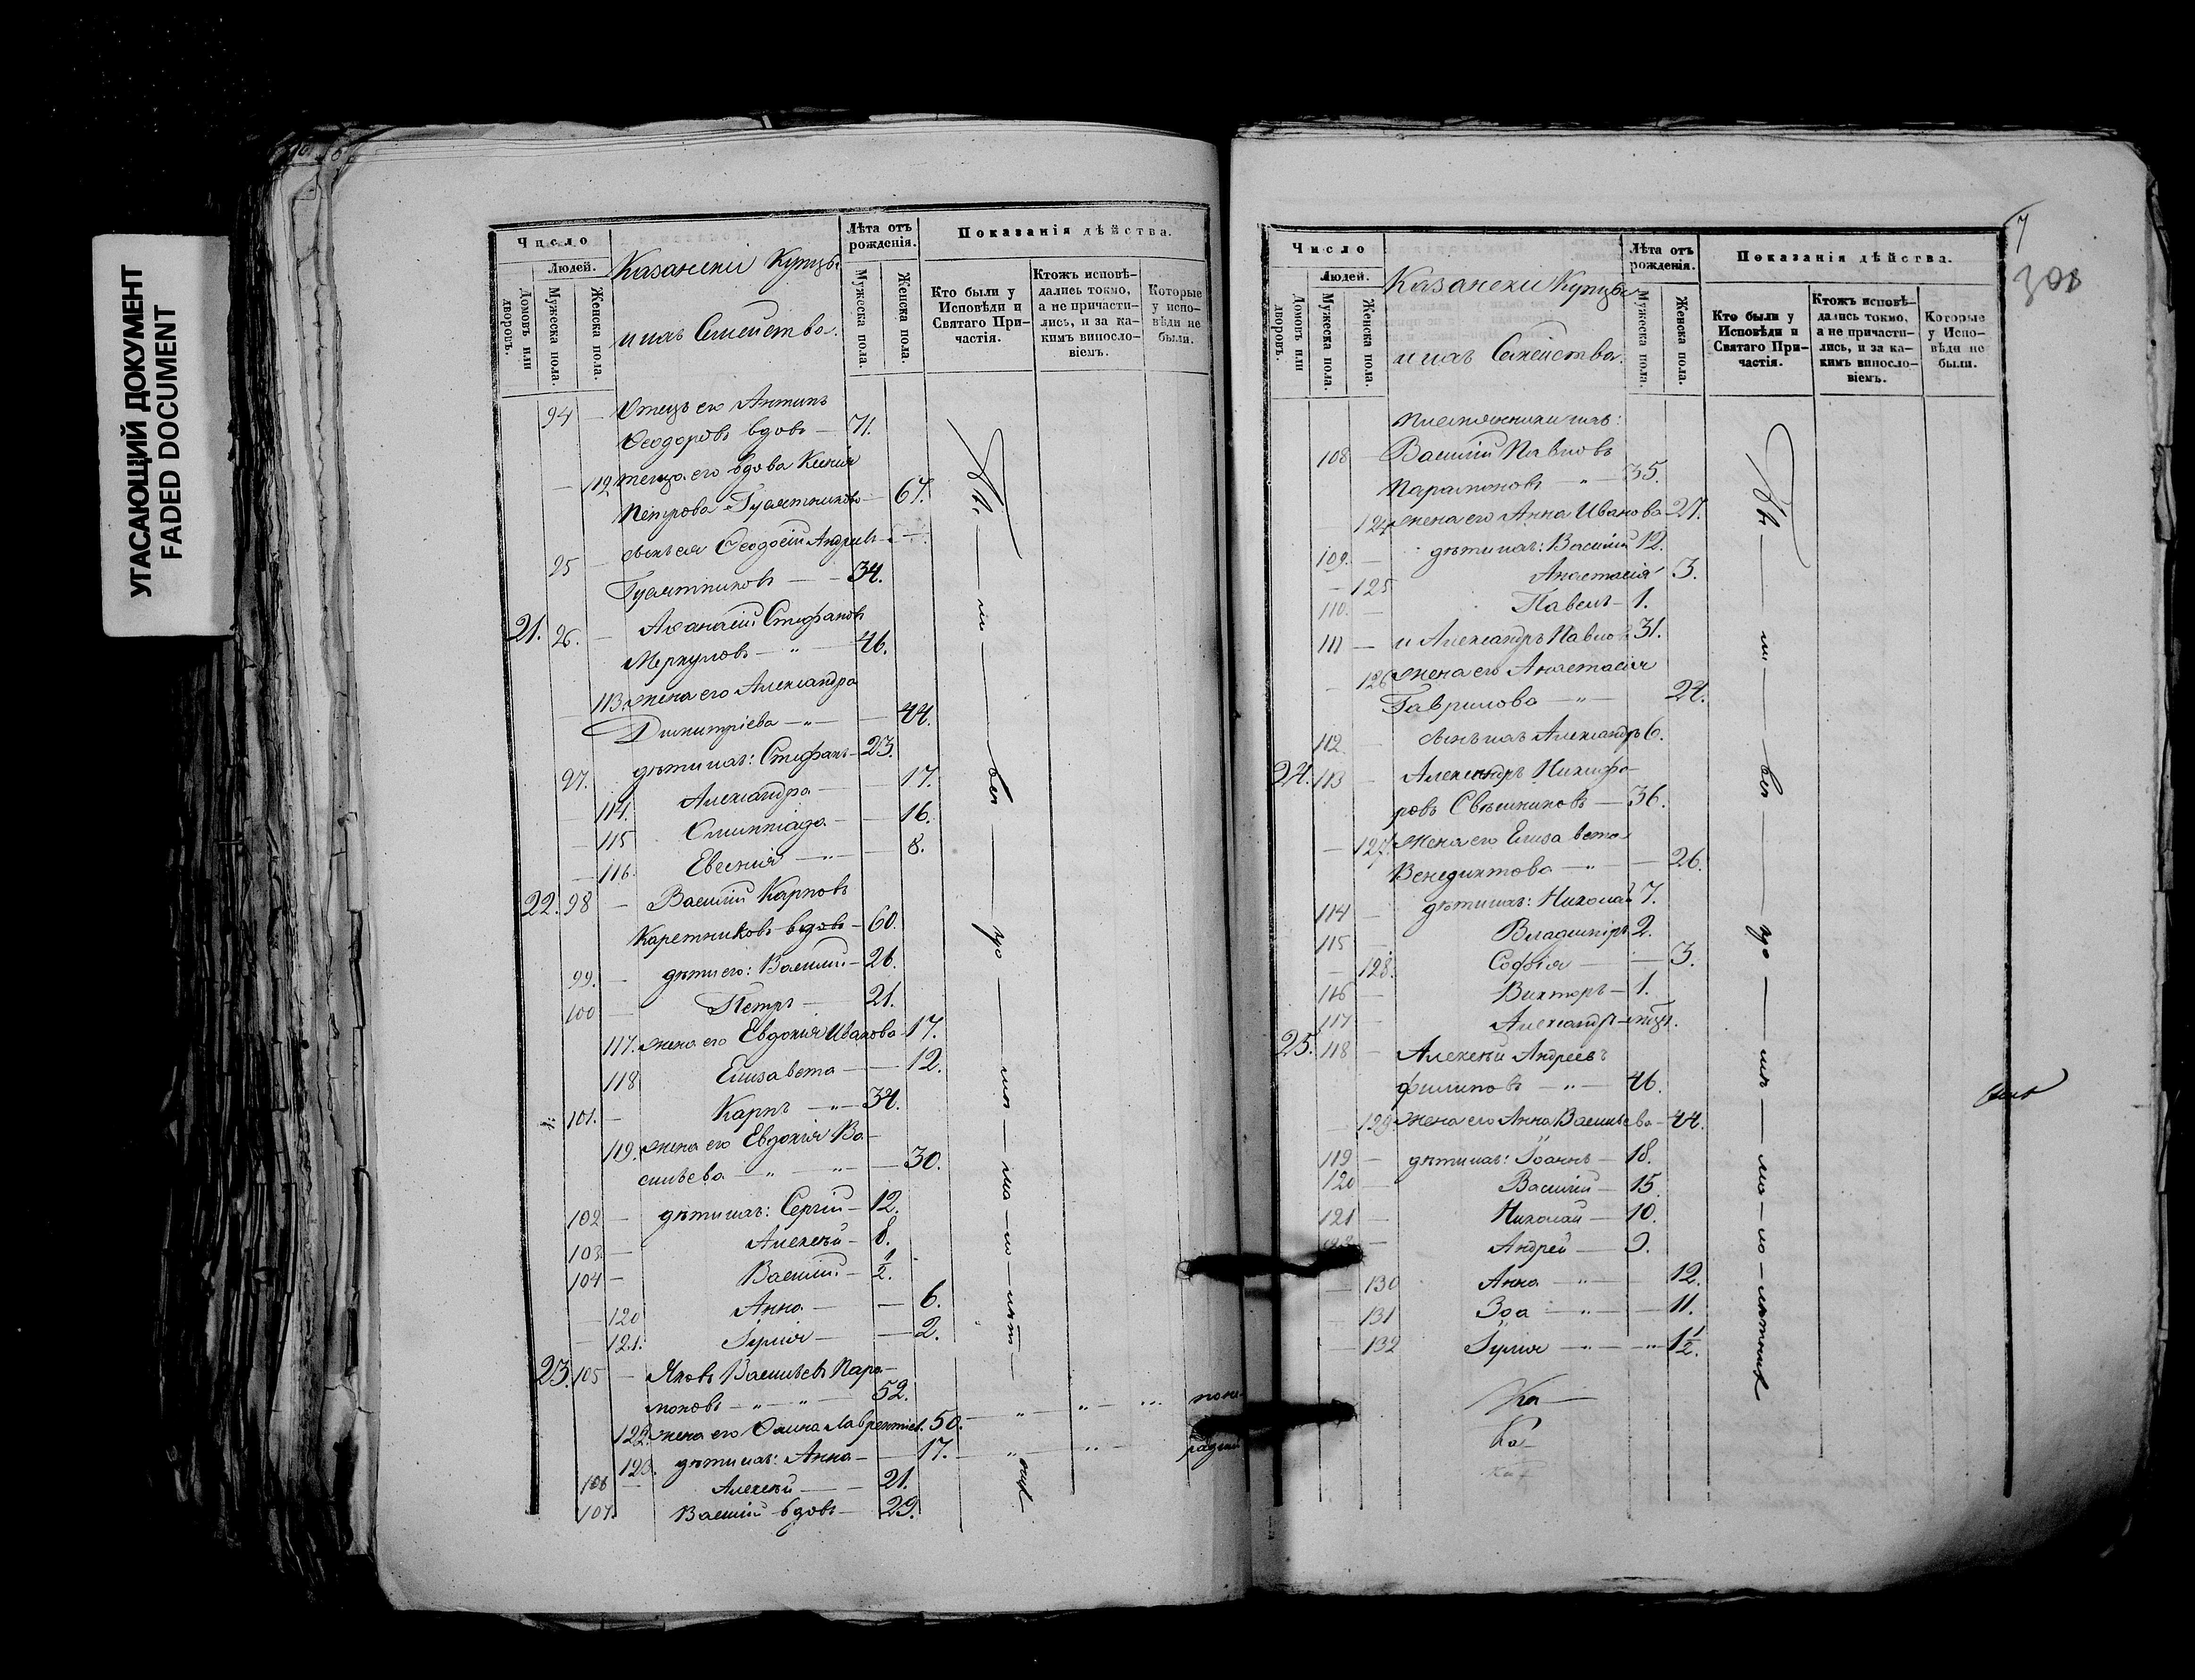 УГАСАЮЩИЙ ДОКУМЕНТ
FADED DOCUMENT
Число
Людей.
Домовъ или дворовъ.
Мужеска пола.
Женска пола.
Казанскіи Купцы
и ихъ Семейства.
Лѣта отъ рожденія.
Мужеска пола.
Женска пола.
Показанія дѣйства.
Кто были у Исповѣди и Святаго Причастія.
Ктожъ исповѣдались токмо, а не причастились, и за какимъ винословіемъ.
Которые у исповѣди не были.
94 — Отецъ его Антипъ
Ѳеодоровъ вдовъ — 71.
— 112 теща его вдова Ксенія
Петрова Гусятникова — 67.
95 — сынъ ея Ѳеодосій Андреевъ
Гусятниковъ — 34.
21. 96. — Аѳанасій Стефановъ
Меркуловъ — " — 46.
— 113. жена его Александра
Димитріева — " — — 44.
97. дѣти ихъ: Стефанъ — 23.
— 114. Александра — — 17.
— 115 Олимпіада — — 16.
— 116. Евгенія — " — — 8.
22. 98 — Василій Карповъ
Каретниковъ вдовъ — 60.
99. — дѣти его: Василій — 26.
100 — Петръ — 21.
117. жена его Евдокія Иванова — 17.
118 Елизавета — — 12.
101. — Карпъ — " — 34.
119. жена его Евдокія Ва-
сильева — " — " — — 30.
102 — дѣти ихъ: Сергій — 12.
103 — Алексѣй — 8.
104 — Василій — 1/2.
— 120 Анна — — 6.
— 121. Іулія — — 2.
23. 105 — Яковъ Васильевъ Пара-
моновъ — " — " — 52.
122. жена его Ѳаина Лаврентіев. 50. — " — " — ...
123. дѣти ихъ: Анна — — 17. — " — " —
106 — Алексѣй — — 21.
107. Василій вдовъ — 29.
7
308
Число
Людей.
Домовъ или дворовъ.
Мужеска пола.
Женска пола.
Казанскіи Купцы
и ихъ Семейства.
Лѣта отъ рожденія.
Мужеска пола.
Женска пола.
Показанія дѣйства.
Кто были у Исповѣди и Святаго Причастія.
Ктожъ исповѣдались токмо, а не причастились, и за какимъ винословіемъ.
Которые у Исповѣди не были.
племянники ихъ:
108 — Василій Павловъ
Парамоновъ — " — 35.
124 жена его Анна Иванова — 27.
109. — дѣти ихъ: Василій 12.
— 125 Анастасія 3.
110. — Павелъ — 1.
111 — и Александръ Павловъ 31.
— 126 жена его Анастасія
Гаврилова — " — 24.
112 — сынъ ихъ Александръ 6.
24. 113 — Александръ Никифо-
ровъ Свѣшниковъ — 36.
— 127. жена его Елизавета
Венедиктова — " — — 26.
114 — дѣти ихъ: Николай 7.
115 — Владиміръ 2.
— 128. Софія — — 3.
116 — Викторъ — 1.
117 — Александръ
25. 118 — Алексѣй Андреевъ
Филиповъ — " — 46.
— 129 жена его Анна Васильева — 44.
119 — дѣти ихъ: Іоаннъ — 18.
120 — Василій — 15.
121 — Николай — 10.
Андрей — 9.
— 130 Анна — " — 12.
— 131 Зоа — " — — 11.
— 132 Іулія — " — " — 1 1/2.